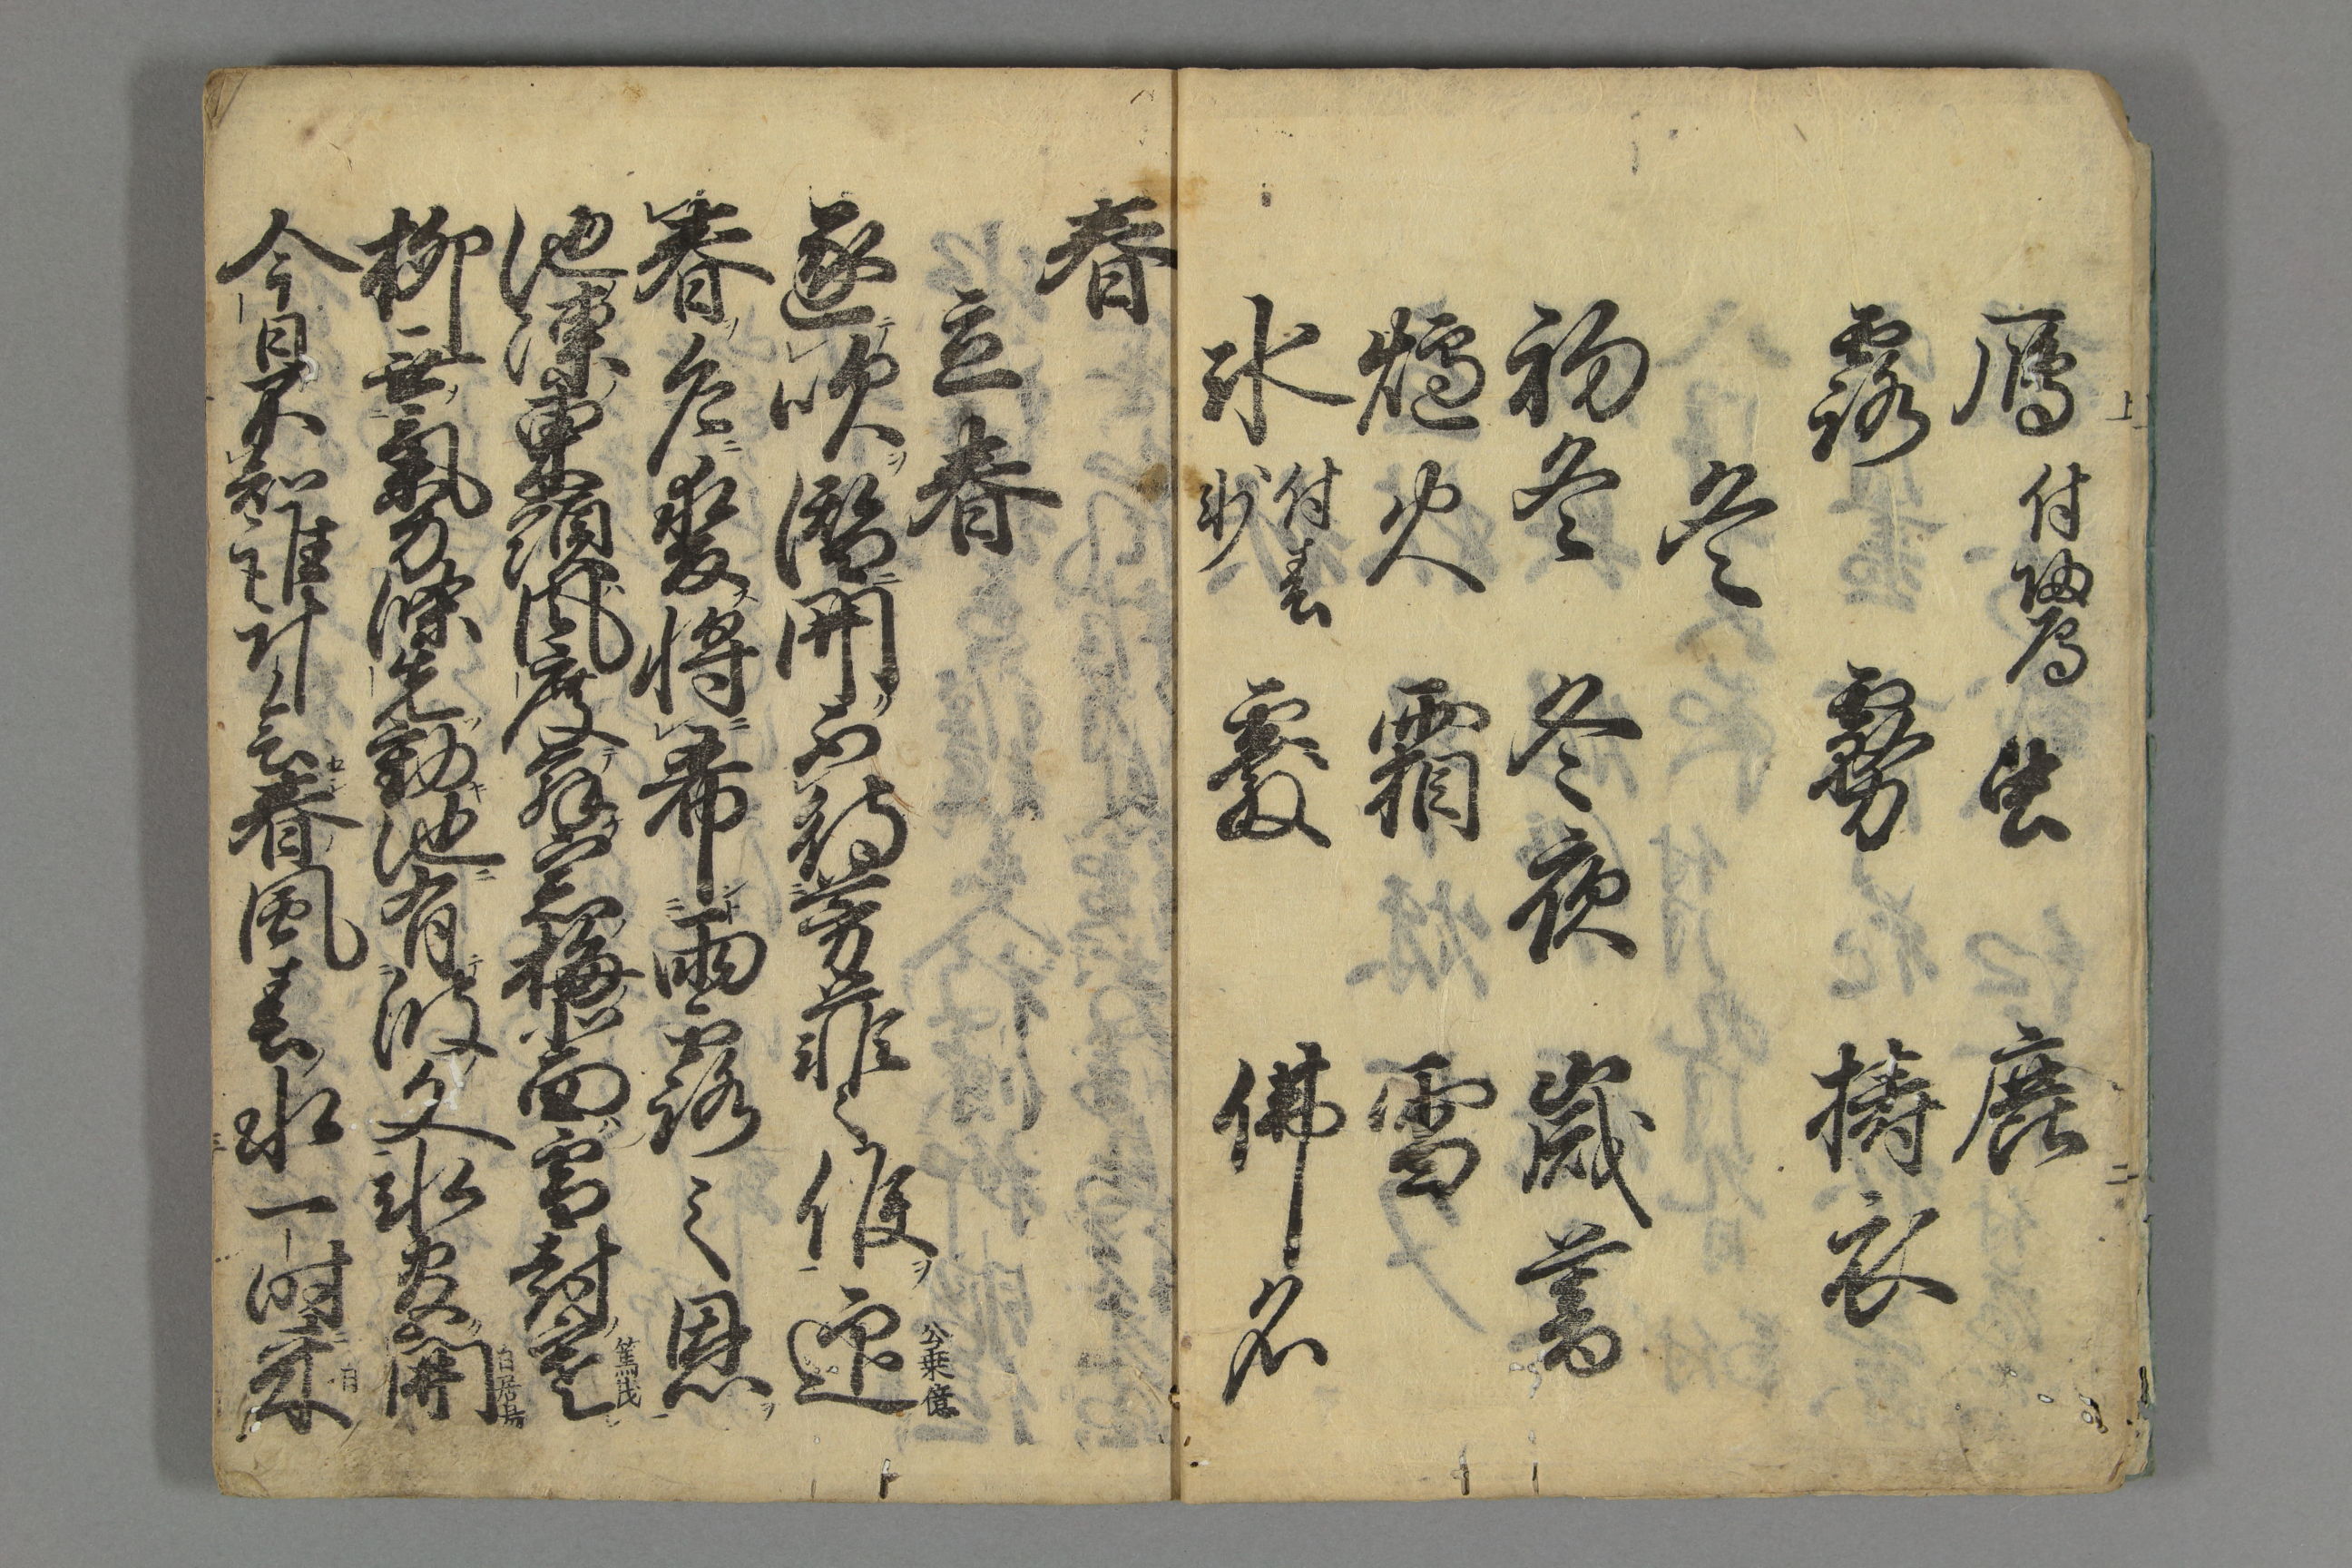 上
二
雁 付帰雁 虫 鹿
露 霧 擣衣
冬
初冬 冬夜 歳暮
爐火 霜 雪
氷 付春氷 霰 佛名
春
立春
逐吹潜開不待芳菲之候迎 公乗億
春乍變將希雨露之恩
池凍東頭風度解窓梅北面雪封寒 篤茂
柳無氣力條先動池有波文氷盡開 白居易
今日不知誰計會春風春水一時來
三